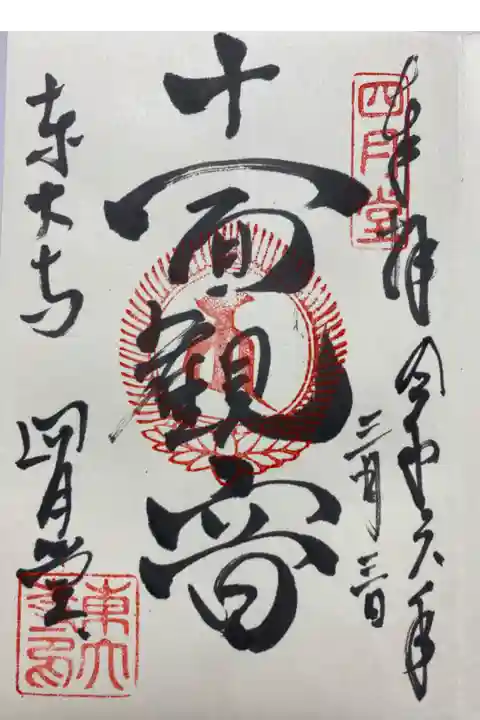 奉拝
四月堂
令和六年
三月三日
十一面観音
東大寺
四月堂